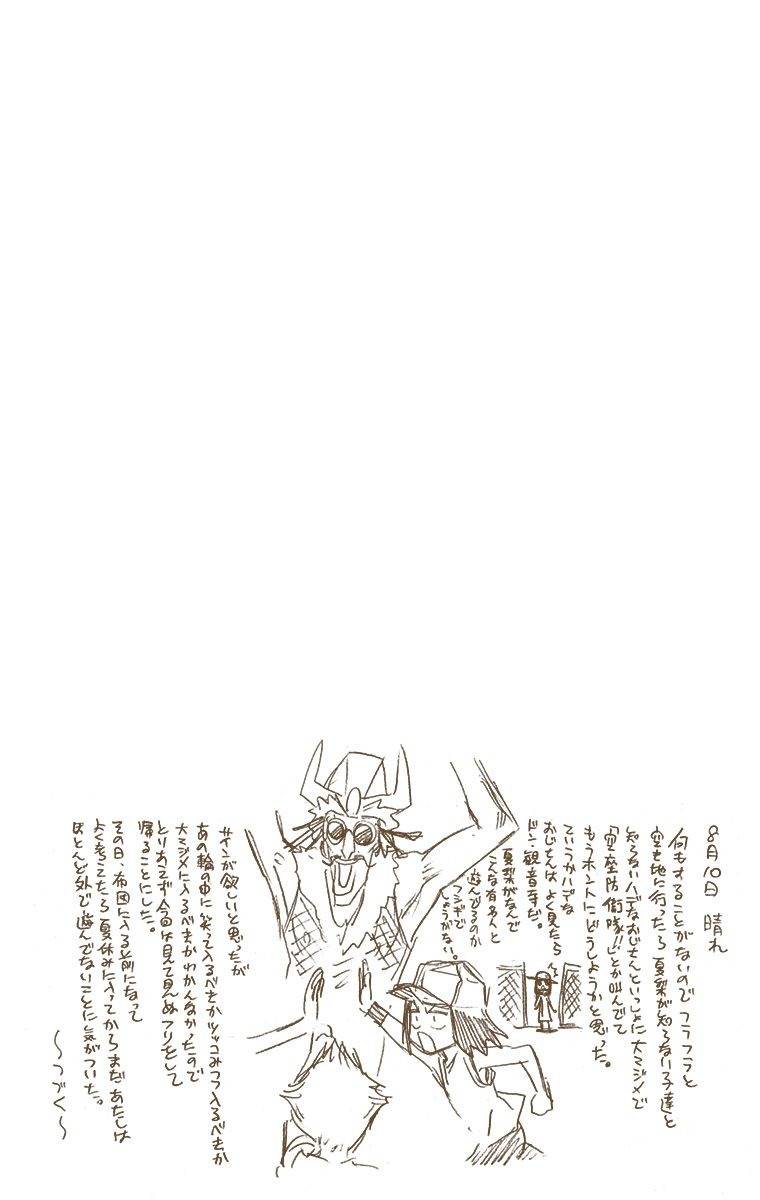 8月10日 晴れ
何もすることがないのでフラフラと
空き地に行ったら夏梨が知らない子達と
知らないハデなおじさんといっしょに大マジメで
「空座防衛隊!!」とか叫んでて
もうホントにどうしようかと思った。
ていうかハデな
おじさんはよく見たら
ドン・観音寺だ。
夏梨がなんで
こんな有名人と
遊んでるのか
フシギで
しょうがない。
サインが欲しいと思ったが
あの輪の中に笑って入るべきかツッコみつつ入るべきか
大マジメに入るべきかわかんなかったので
とりあえず今回は見て見ぬフリをして
帰ることにした。
その日、布団に入る前になって
よく考えたら夏休みに入ってからまだあたしは
ほとんど外で遊んでないことに気がついた。
〜つづく〜